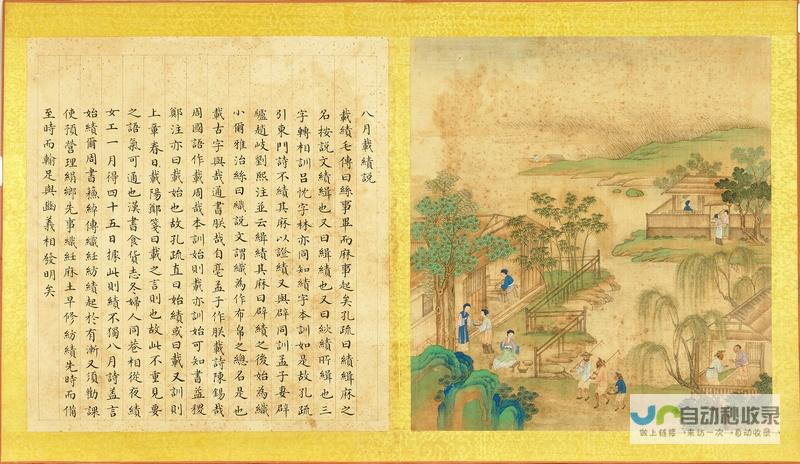 八月載績說
載績毛傳曰絲事畢而麻事起矣孔疏曰績緝麻之
名按說文績緝也又曰緝績也又曰紨績所緝也三
字轉相訓呂忱字林亦同知績字本訓如是故孔疏
引東門詩不績其麻以證績又與辟同訓孟子妻辟
纑趙岐劉熙注並云緝績其麻曰辟績之後始為織
小爾雅治絲曰織說文謂織為作布帛之總名是也
載古字與哉通書朕哉自亳孟子作朕載詩陳錫哉
周國語作載周哉本訓始則載亦訓始可知書益稷
鄭注亦曰載始也故孔疏直曰始績或曰載又訓則
上章春日載陽鄭箋曰載之言則也故此不重見要
之語氣可通也漢書食貨志冬婦人同巷相從夜績
女工一月得四十五日據此則績不獨八月詩蓋言
始績爾周書蘓綽傳織紝紡績起於有漸又須勸課
使預營理絹鄉先事織紝麻土早修紡績先時而備
至時而輸足與豳義相發明矣
自动秒收录
做上链接→来访一次→自动收录